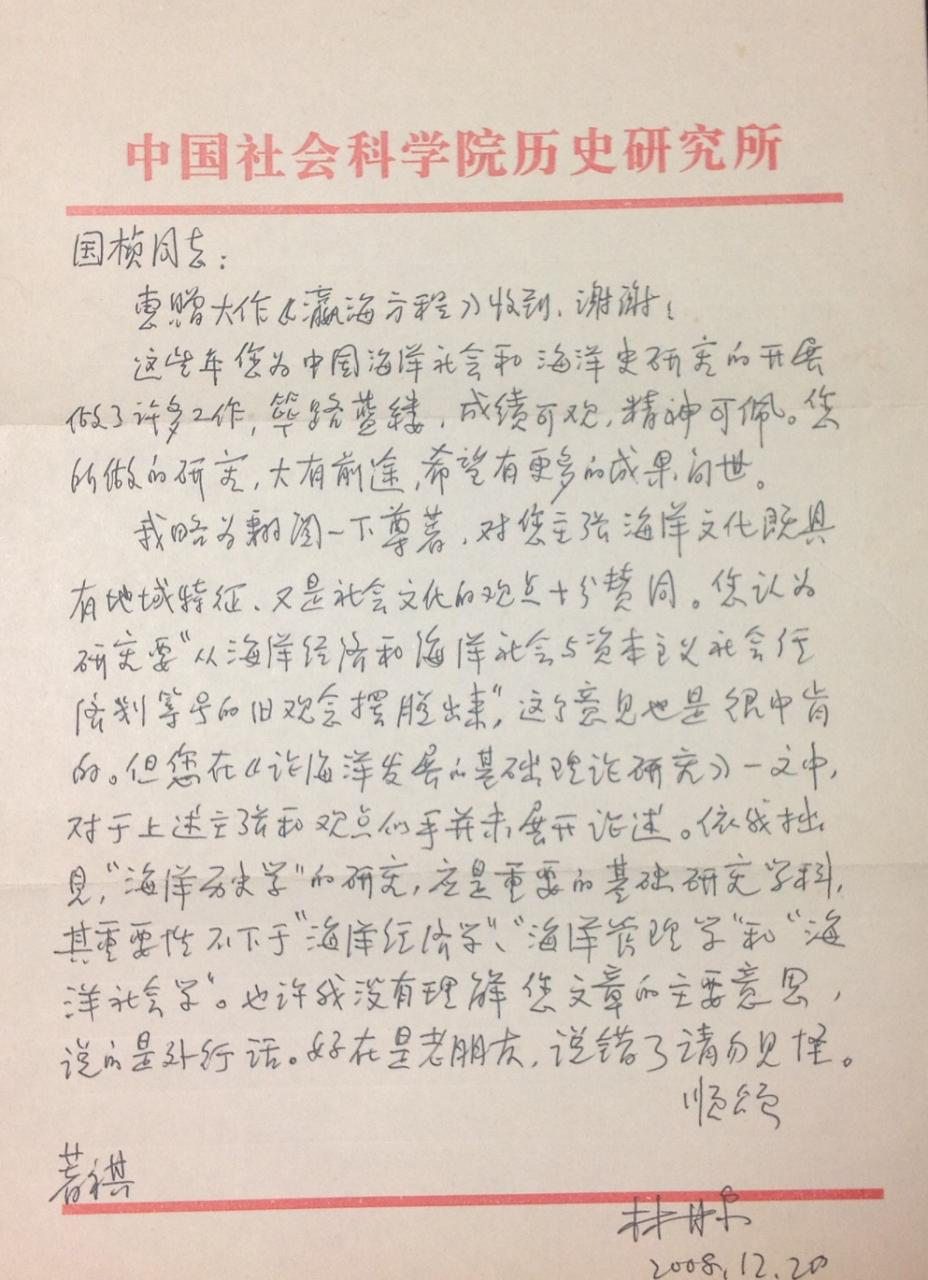 中国社会科学院历史研究所
国桢同志：
惠赠大作《瀛海方程》收到，谢谢！
这些年您为中国海洋社会和海洋史研究的开展
做了许多工作，筚路蓝缕，成绩可观，精神可佩。您
所做的研究，大有前途，希望有更多的成果问世。
我略为翻阅一下尊著，对您主张海洋文化既具
有地域特征、又是社会文化的观点十分赞同。您认为
研究要“从海洋经济和海洋社会与资本主义社会经
济划等号的旧观念摆脱出来”，这个意见也是很中肯
的。但您在《论海洋发展的基础理论研究》一文中，
对于上述主张和观点似乎并未展开论述。依我拙
见，“海洋历史学”的研究，应是重要的基础研究学科，
其重要性不下于“海洋经济学”、“海洋管理学”和“海
洋社会学”。也许我没有理解您文章的主要意思，
说的是外行话。好在是老朋友，说错了请勿见怪。
顺颂
著祺
林甘泉
2008.12.20